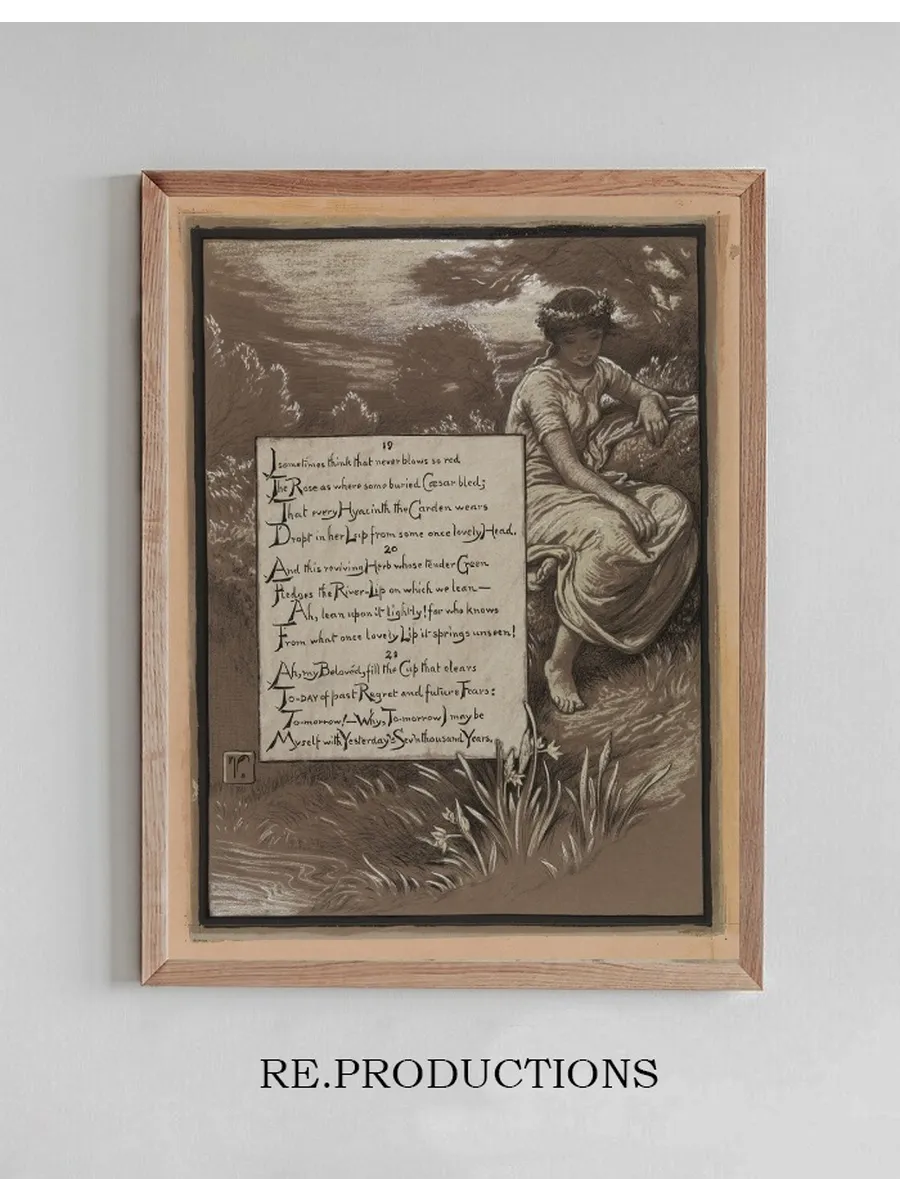 19
I sometimes think that never blows so red
The Rose as where some buried Cæsar bled;
That every Hyacinth the Garden wears
Dropt in her Lap from some once lovely Head.
20
And this reviving Herb whose tender Green
Fledges the River-Lip on which we lean—
Ah, lean upon it lightly! for who knows
From what once lovely Lip it springs unseen!
21
Ah, my Beloved, fill the Cup that clears
To-DAY of past Regret and future Fears:
To-morrow!—Why, To-morrow I may be
Myself with Yesterday's Sev'n thousand Years.
V.
RE.PRODUCTIONS